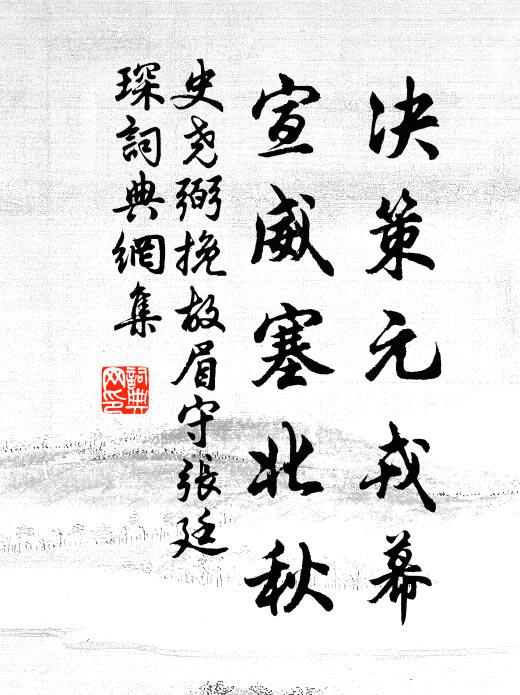 决策元戎幕
宣威塞北秋
史尧弼挽故眉守张廷
琛詞典網集
詞典網印